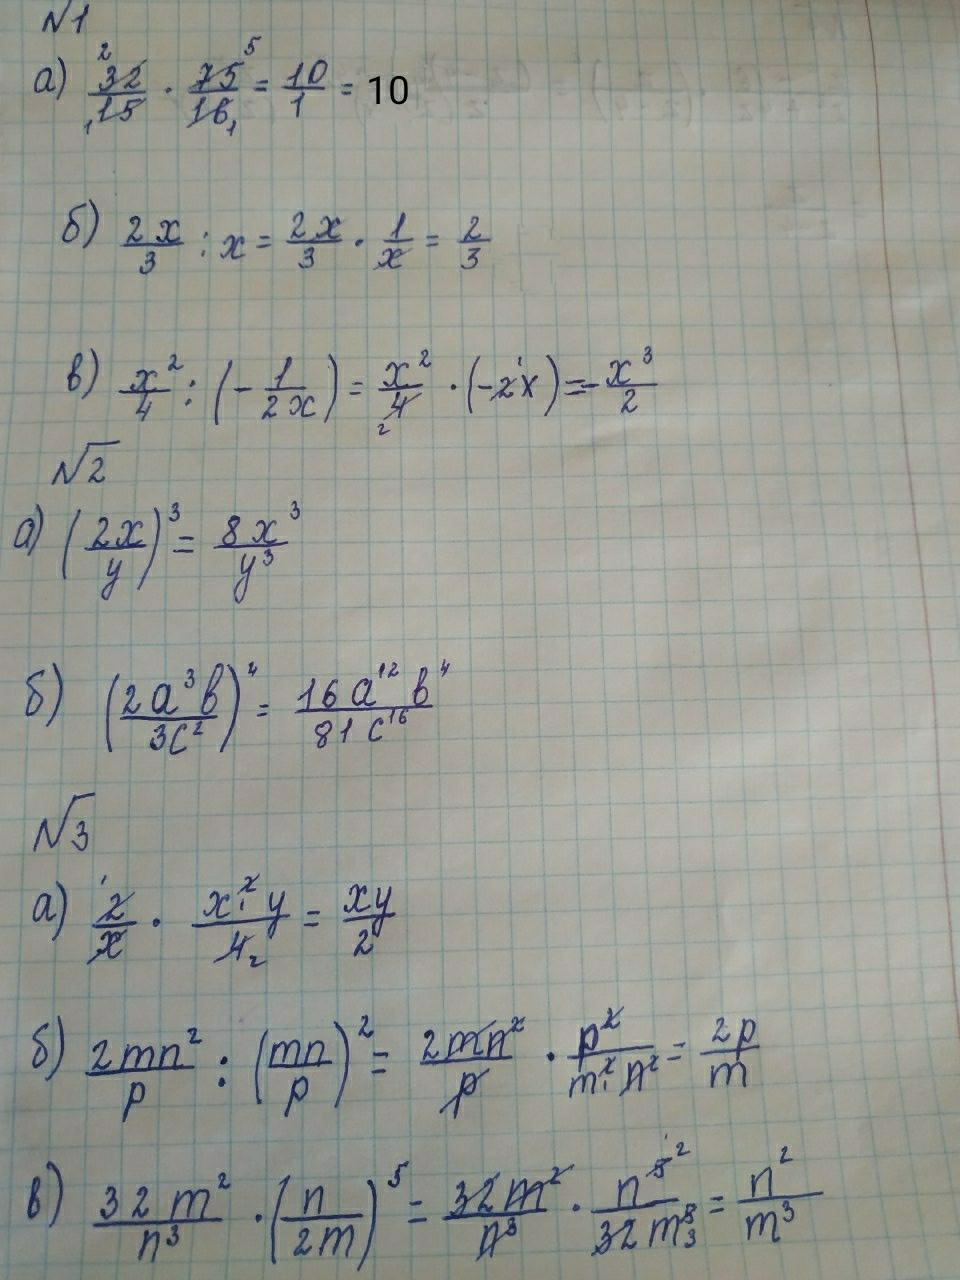 №1
а) 32/15 · 75/16 = 10/1 = 10
б) 2x/3 : x = 2x/3 · 1/x = 2/3
в) x²/4 : (-1/2x) = x²/4 · (-2x) = -x³/2
№2
а) (2x/y)³ = 8x³/y³
б) (2a³b/3c²)⁴ = 16a¹²b⁴/81c¹⁶
№3
а) 2/x · x²y/4 = xy/2
б) 2mn²/p : (mn/p)² = 2mn²/p · p²/m²n² = 2p/m
в) 32m²/n³ · (n/2m)⁵ = 32m²/n³ · n⁵/32m⁵ = n²/m³